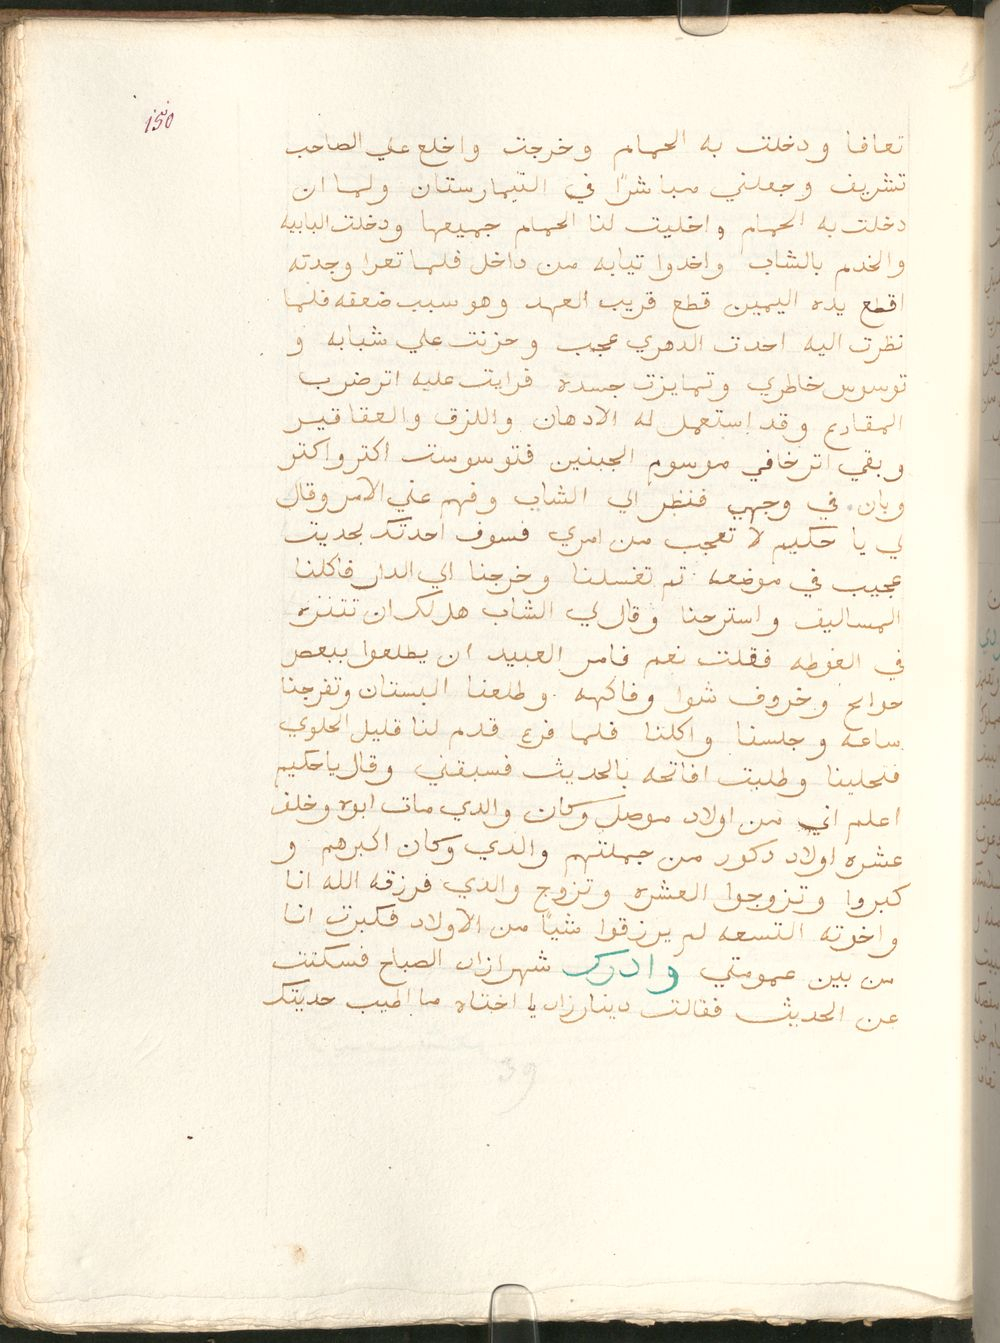 150
تعافا ودخلت به الحمام وخرجت واخلع علي الصاحب
تشريف وجعلني مباشرًا في التيمارستان ولما ان
دخلت به الحمام واخليت لنا الحمام جميعها ودخلت البابيه
والخدم بالشاب واخدوا تيابه من داخل فلما تعرا وجدته
اقطع يده اليمين قطع قريب العهد وهو سبب ضعفه فلما
نظرت اليه احدت الدهري عجب وحزنت علي شبابه و
توسوس خاطري وتمايزت جسده فرايت عليه اتر ضرب
المقاريع وقد استعمل له الادهان واللزق والعقاقير
وبقي اتر خافي موسوم الجنبين فتوسوست اكتر واكتر
وبان في وجهي فنظر الي الشاب وفهم عني الامر وقال
لي يا حكيم لا تعجب من امري فسوف احدتك بحديت
عجيب في موضعه تم تغسلنا وخرجنا الي الدار فاكلنا
المساليق واسترحنا وقال لي الشاب هل لك ان تتنزه
في الغوطه فقلت نعم فامر العبيد ان يطلعوا ببعض
حوايج وخروف شوا وفاكهه وطلعنا البستان وتفرجنا
ساعه وجلسنا واكلنا فلما فرغ قدم لنا قليل الحلوي
فتحلينا وطلبت افاتحه بالحديث فسبقني وقال يا حكيم
اعلم اني من اولاد موصل وكان والدي مات ابوه وخلف
عشره اولاد دكور من جملتهم والدي وكان اكبرهم و
كبروا وتزوجوا العشره وتزوج والدي فرزقه الله انا
واخوته التسعه لم يرزقوا شيًا من الاولاد فكبرت انا
من بين عمومتي وادرك شهرازاد الصباح فسكتت
عن الحديث فقالت دينارزاد يا اختاه ما اطيب حديتك
39